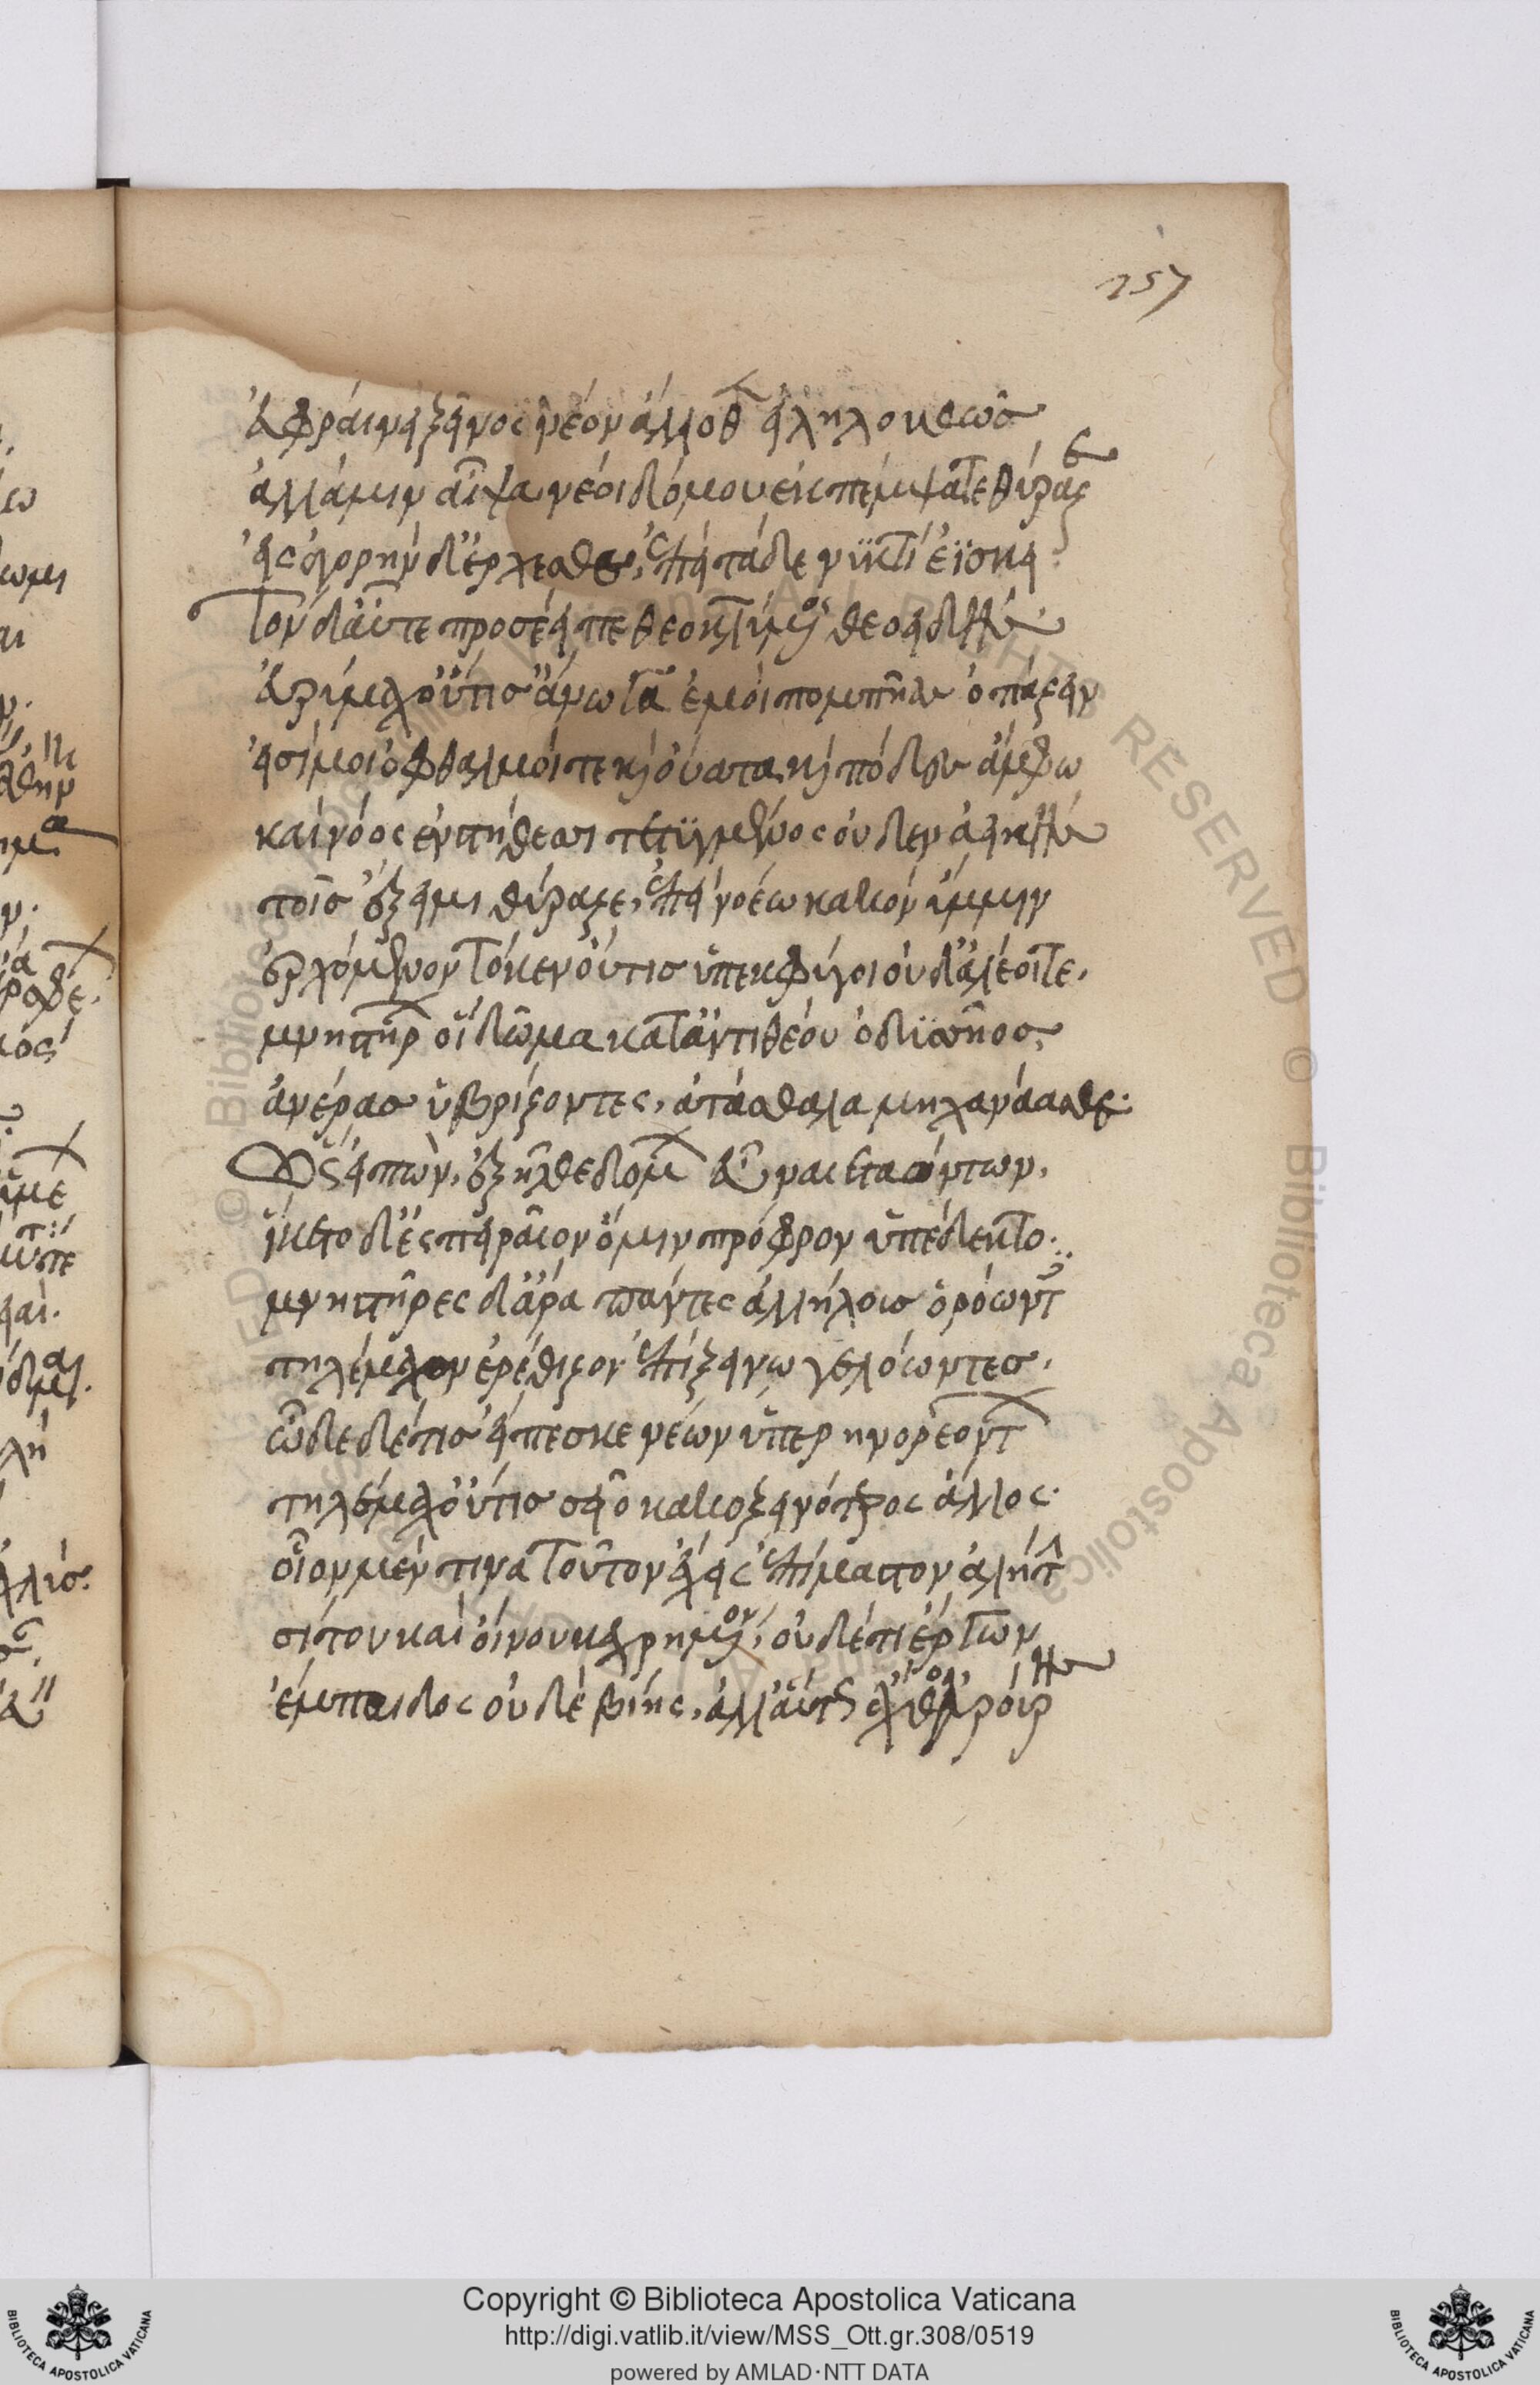 257
ἀφραίνει ξεῖνος νέον ἄλλοθεν εἰληλουθώς
ἀλλά μιν αἶψα νέοι δόμου ἐκπέμψατε θύραζε
εἰς ἀγορὴν δ' ἔρχεσθαι, ἐπεὶ τάδε νϋκτὶ ἐΐσκει.
Τὸν δ' αὖτε προσέειπε θεοκλύμενος θεοειδής·
εὐρύμαχ' οὔτις ἄνωγα ἐμοὶ πομπῆας ὀπάζειν
εἰσί μοι ὀφθαλμοί τε καὶ οὔατα καὶ πόδες ἄμφω
καὶ νόος ἐν στήθεσσι τετϋγμένος οὐδὲν ἀεικής
τοῖς ἔξειμι θύραζε, ἐπεὶ νοέω κακὸν ὔμμιν
ἐρχόμενον τό κεν οὔτις ὑπεκφύγοι οὐδ' ἀλέοιτο,
μνηστήρων οἳ δῶμα κατ' ἀντιθέου ὀδϋσσῆος,
ἀνέρας ὑβρίζοντες, ἀτάσθαλα μηχανάασθε.
Ὣς εἰπὼν, ἐξῆλθε δόμων εὖ ναιεταόντων,
ἵκετο δ' ἐς πείραιον ὅ μιν πρόφρον ὑπέδεκτο.
μνηστῆρες δ' ἄρα πάντες ἀλλήλους ὁρόωντες
τηλέμαχον ἐρέθιζον ἐπὶ ξείνω γελόωντες.
ὧδε δέ τις εἴπεσκε νέων ὑπερηνορεόντων
τηλέμαχ' οὔτις σεῖο κακοξεινότερος ἄλλος·
οἷον μέν τινα τοῦτον ἔχεις ἐπίμαστον ἀλήτην
σίτου καὶ οἴνου κεχρημένον, οὐδέ τι ἔργων
ἔμπαιδος οὐδὲ βίης, ἀλλ' αὔτως ἄχθος ἀρούρης
Copyright © Biblioteca Apostolica Vaticana
http://digi.vatlib.it/view/MSS_Ott.gr.308/0519
powered by AMLAD·NTT DATA